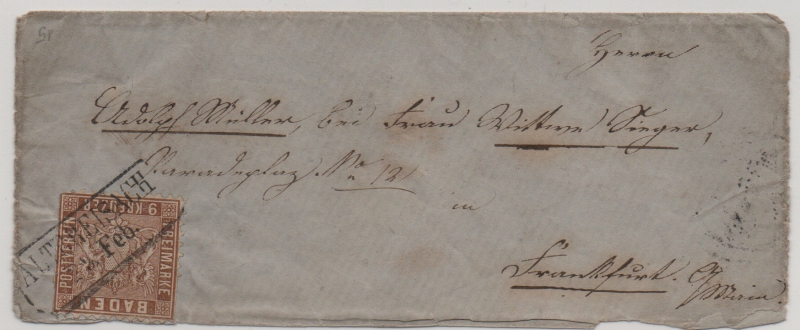 Herrn
Adolph Müller, bei Frau Wittwe Sieger,
Paradeplatz No 121
in
Frankfurt. a/Main.
ALTBREISACH
Feb.
9 KREUZER
POSTVEREIN
FREIMARKE
BADEN